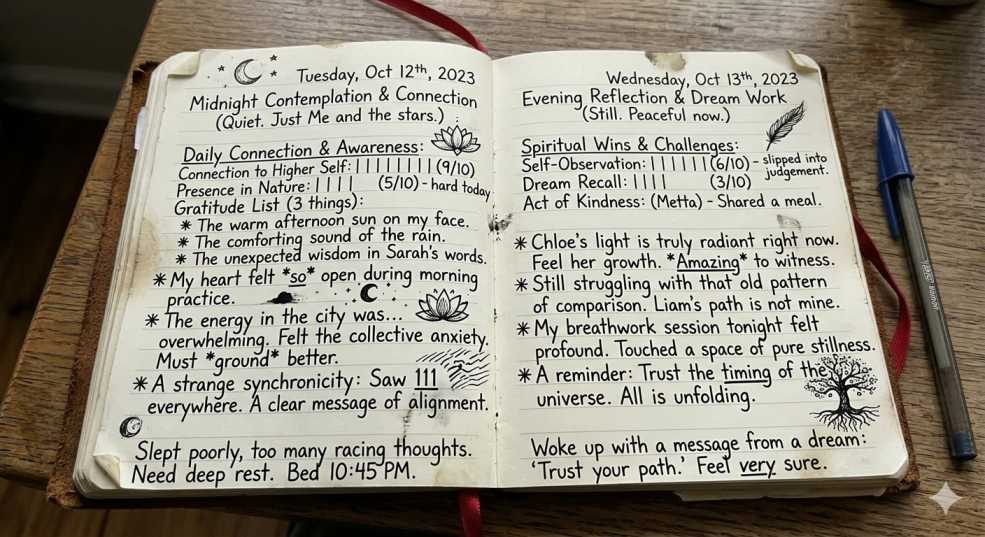 Tuesday, Oct 12th, 2023
Midnight Contemplation & Connection
(Quiet. Just Me and the stars.)
Daily Connection & Awareness:
Connection to Higher Self: | | | | | | | | (9/10)
Presence in Nature: | | | | (5/10) - hard today
Gratitude List (3 things):
* The warm afternoon sun on my face.
* The comforting sound of the rain.
* The unexpected wisdom in Sarah's words.
* My heart felt *so* open during morning
practice.
* The energy in the city was...
overwhelming. Felt the collective anxiety.
Must *ground* better.
* A strange synchronicity: Saw 111
everywhere. A clear message of alignment.
Slept poorly, too many racing thoughts.
Need deep rest. Bed 10:45 PM.
Wednesday, Oct 13th, 2023
Evening Reflection & Dream Work
(Still. Peaceful now.)
Spiritual Wins & Challenges:
Self-Observation: | | | | | | | (6/10) - slipped into
judgement.
Dream Recall: | | | | (3/10)
Act of Kindness: (Metta) - Shared a meal.
* Chloe's light is truly radiant right now.
Feel her growth. *Amazing* to witness.
* Still struggling with that old pattern
of comparison. Liam's path is not mine.
* My breathwork session tonight felt
profound. Touched a space of pure stillness.
* A reminder: Trust the timing of the
universe. All is unfolding.
Woke up with a message from a dream:
'Trust your path.' Feel very sure.